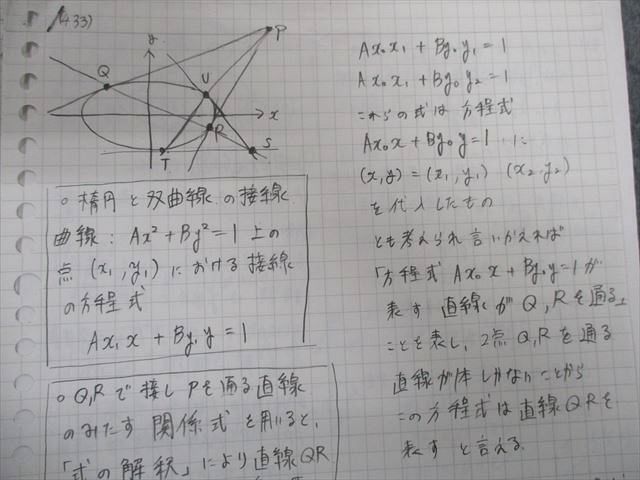 (433)
P
y
Q
U
x
R
S
T
○楕円と双曲線の接線
曲線:Ax²+By²=1上の
点(x₁,y₁)における接線
の方程式
Ax₁x+By₁y=1
○Q,Rで接しPを通る直線
のみたす関係式を用いると、
「式の解釈」により直線QR
Ax₀x₁+By₀y₁=1
Ax₀x₁+By₀y₂=1
これらの式は方程式
Ax₀x+By₀y=1に
(x,y)=(x₁,y₁) (x₂,y₂)
を代入したもの
とも考えられ言いかえれば
「方程式Ax₀x+By₀y=1が
表す直線がQ,Rを通る」
ことを表し、2点Q,Rを通る
直線が1本しかないことから
この方程式は直線QRを
表すと言える.